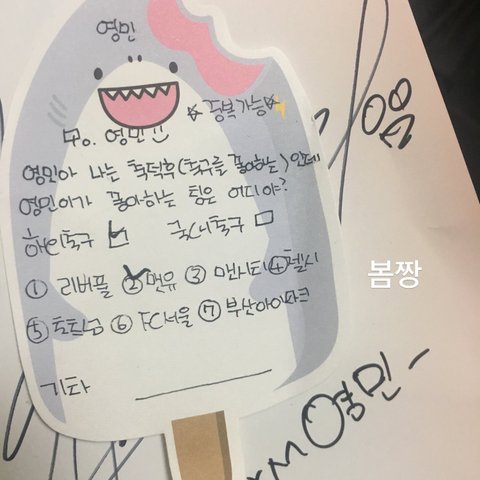 영민
☆ 중복가능 ☆
To. 영민 !!
영민아 나는 축덕후(축구를 좋아하는)인데
영민이가 좋아하는 팀은 어디야?
해외축구 ☑ 국내축구 □
① 리버풀 ② 맨유 ③ 맨시티 ④ 첼시
⑤ 토트넘 ⑥ FC서울 ⑦ 부산아이파크
기타
봄짱
영민